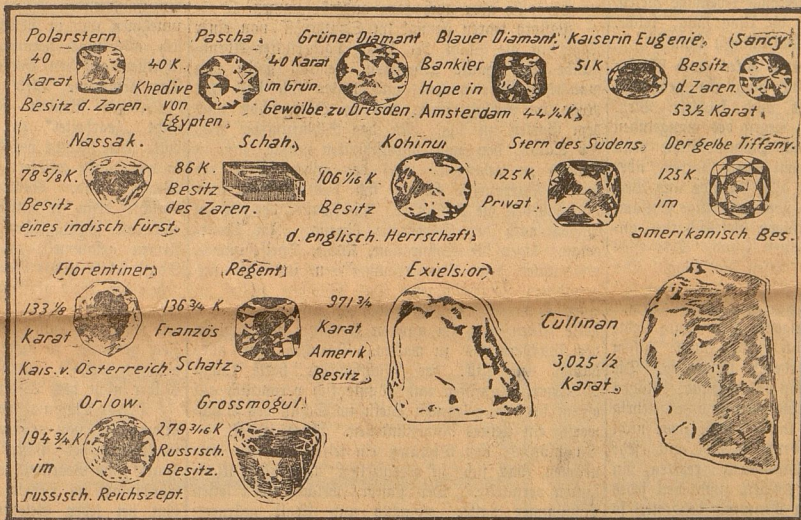 Polarstern.
40
Karat
Besitz d. Zaren.
Pascha.
40 K.
Khedive
von
Egypten.
Grüner Diamant
40 Karat
im Grün.
Gewölbe zu Dresden.
Blauer Diamant.
Bankier
Hope in
Amsterdam 44 1/4 K.
Kaiserin Eugenie.
51 K.
(Sancy)
Besitz
d. Zaren.
53 1/2 Karat.
Nassak.
78 5/8 K.
Besitz
eines indisch. Fürst.
Schah.
86 K.
Besitz
des Zaren.
Kohinur
106 1/16 K.
Besitz
d. englisch. Herrschaft)
Stern des Südens.
125 K
Privat.
Der gelbe Tiffany.
125 K
im
amerikanisch Bes.
(Florentiner)
133 1/8
Karat
Kais. v. Österreich.
(Regent)
136 3/4 K
Französ
Schatz.
Exielsior)
971 3/4
Karat
Amerik.
Besitz.
Cullinan
3,025 1/2
Karat.
Orlow.
194 3/4 K.
im
russisch. Reichszept.
Grossmogul.
279 3/16 K
Russisch.
Besitz.